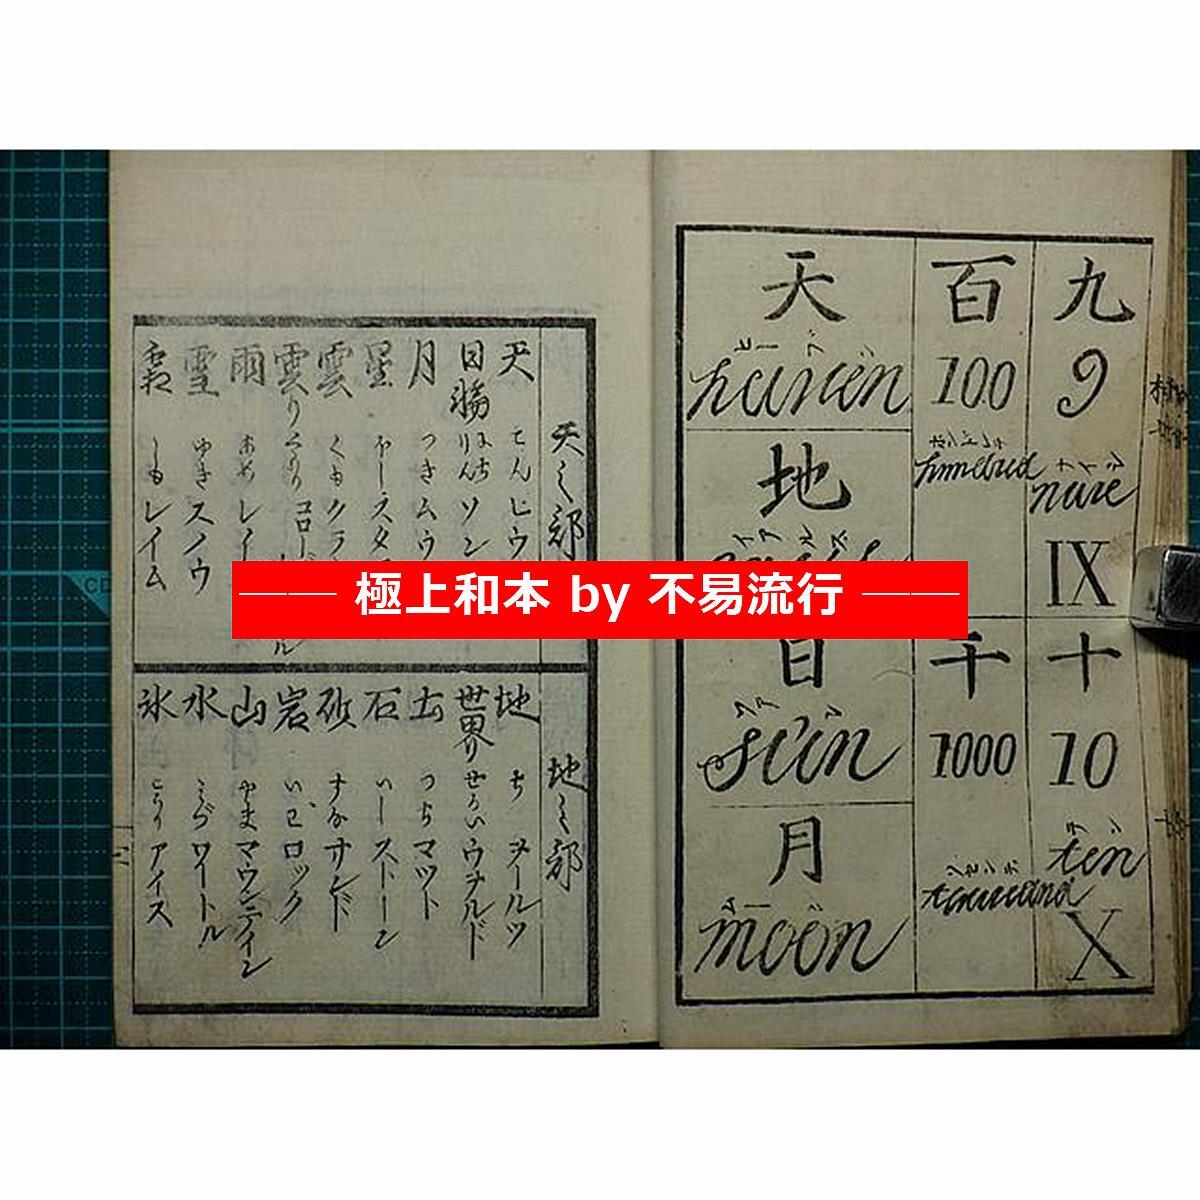 九
9
ナイン
nine
IX
十
10
テン
ten
X
百
100
ホンドレツ
hundred
千
1000
tousand
天
ヒーブン
heaven
地
イアルス
日
ソアン
sun
月
ムーン
moon
極上和本 by 不易流行
天之部
天 てんヒウ
日輪 にちりんソン
月 つきムウ
星 ほしスタ
雲 くもクラ
雨 あめレイ
雪 ゆきスノウ
霜 しもレイム
地之部
地 ち ヲールツ
世界 せかいウヲルルド
土 つちマツト
石 いしストーン
砂 すなサンド
岩 いはロック
山 やまマウンテイン
水 みづワートル
氷 こほりアイス